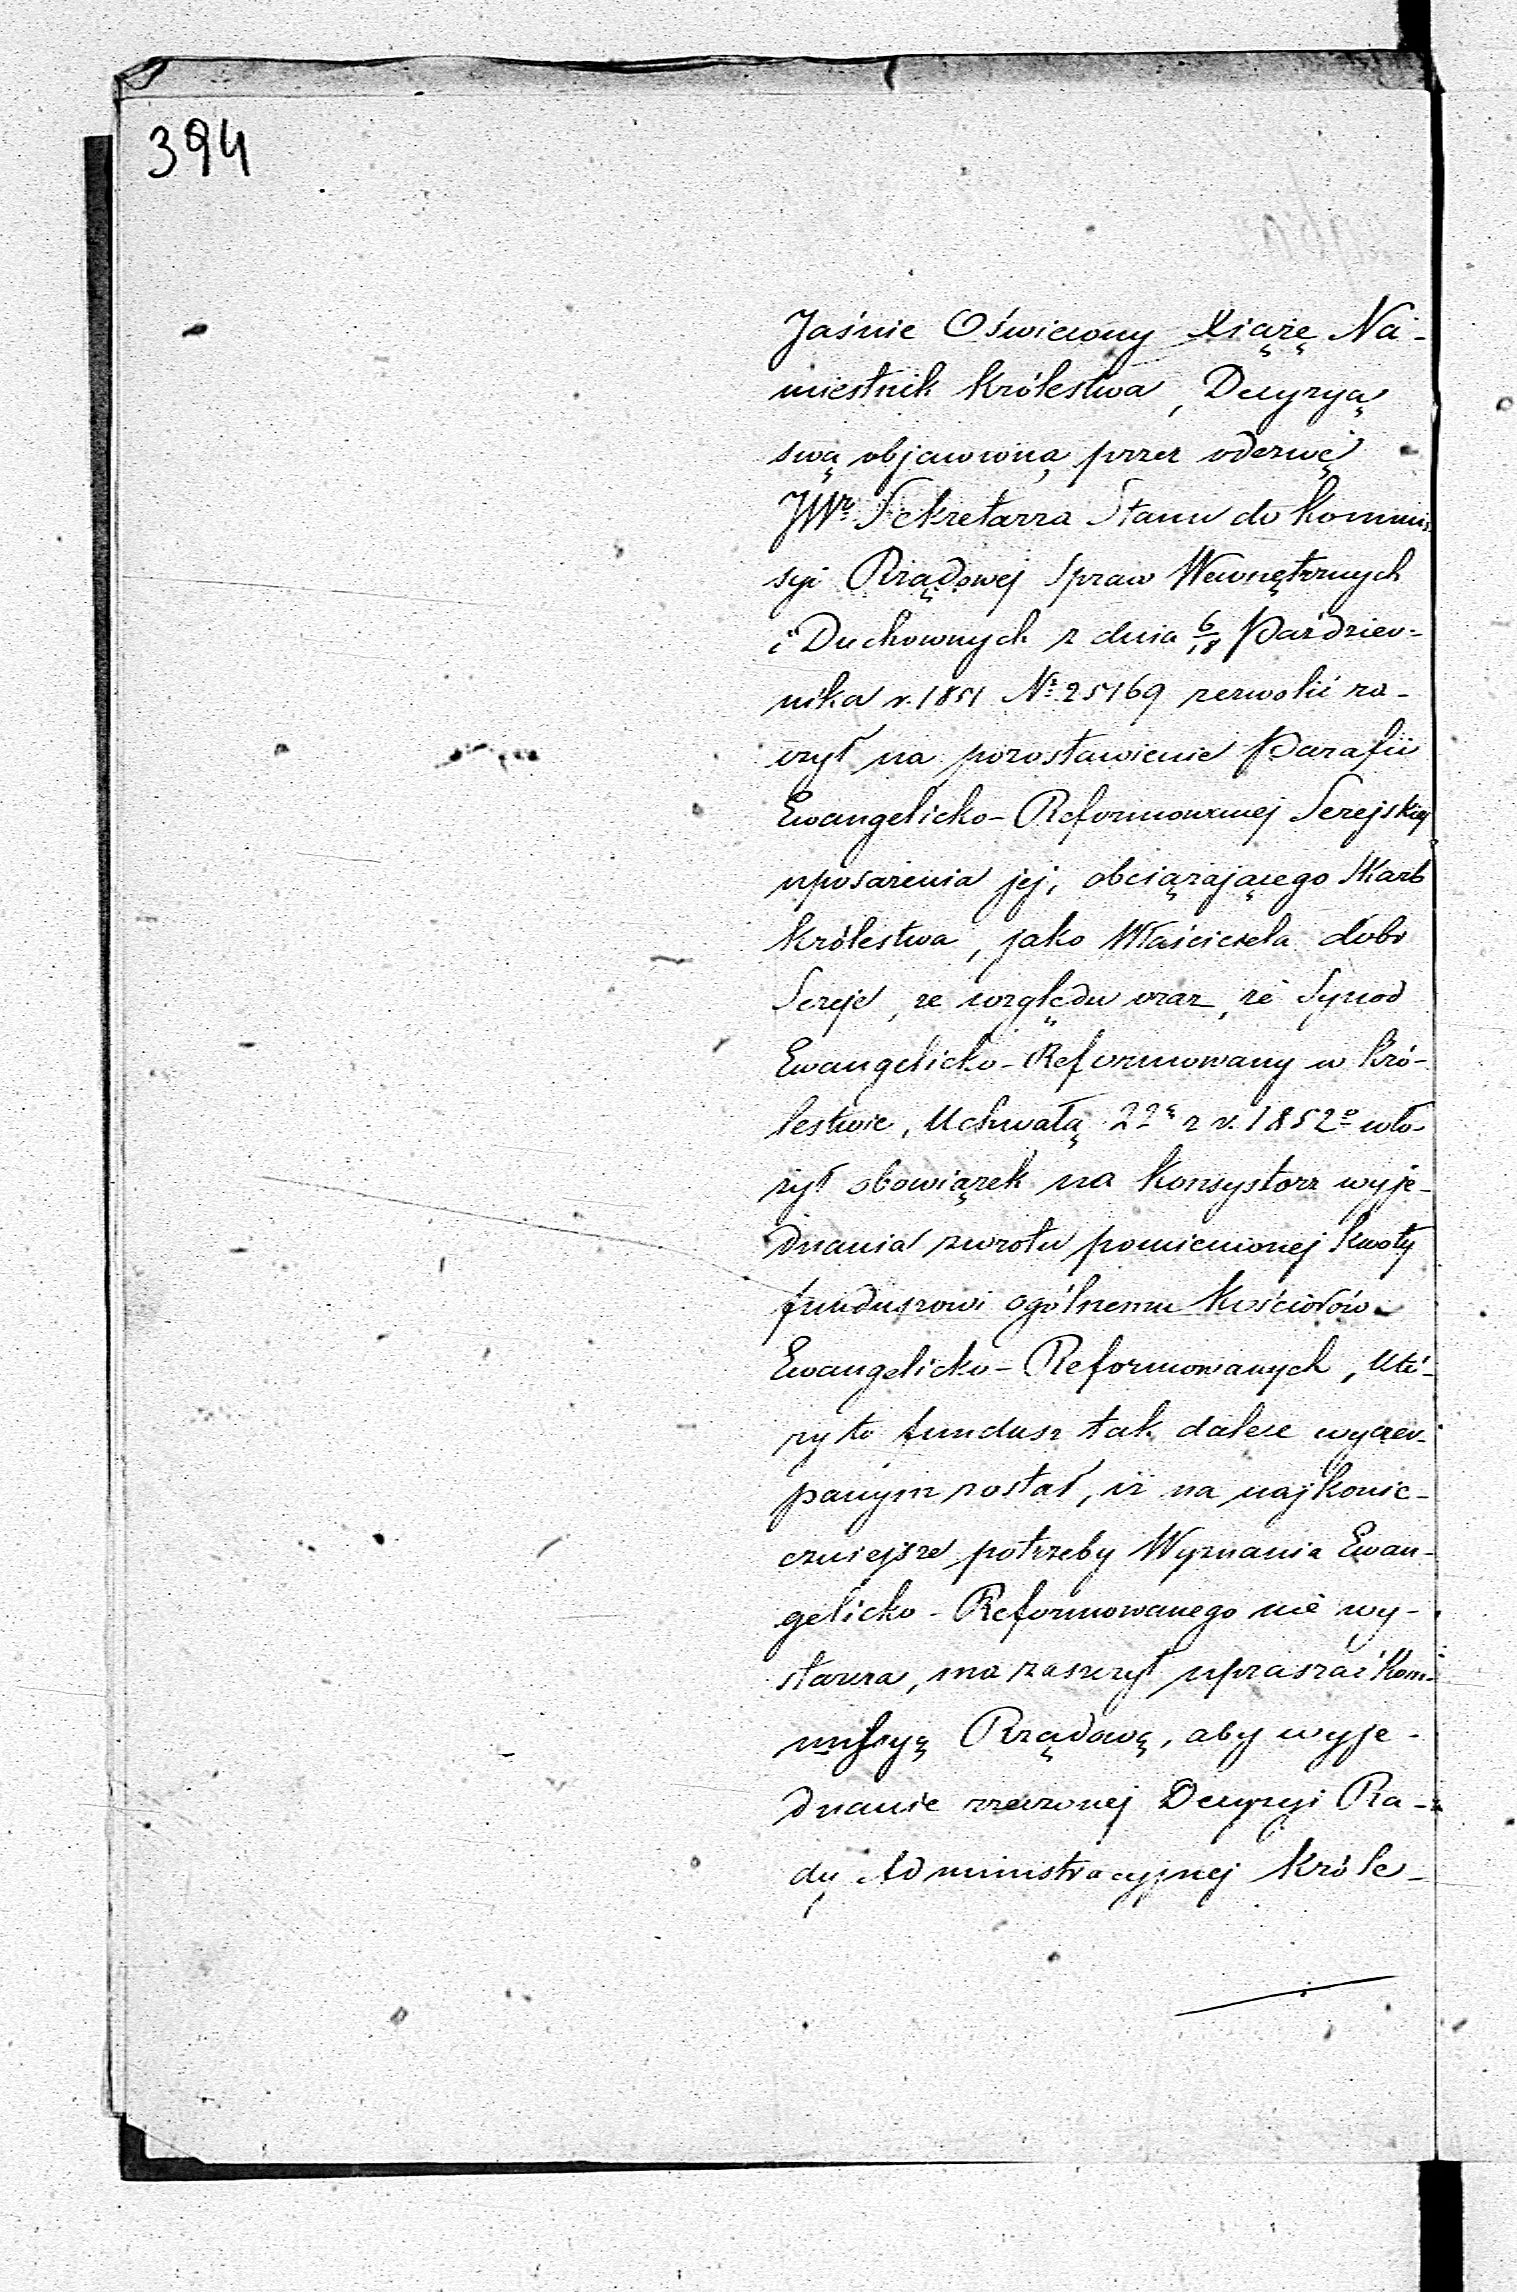 394
Jaśnie Oświecony Xiążę Na-
miestnik Królestwa, Decyzyą
swą objawioną przez odezwę
JWo Sekretarza Stanu do Kommis
syi Rządowej Spraw Wewnętrznych
i Duchownych z dnia 6/18 Paździer=
nika r. 1851 No 25169 zezwolić ra-
czył na pozostawienie Parafii
Ewangelicko-Reformowanej Serejskiej
uposażenia jej, obciążającego Skarb
Królestwa, jako Właściciela dóbr
Sereje, ze względu zaś, że Synod
Ewangelicko-Reformowany w Kró-
lestwie, Uchwałą 22ą z r. 1852o wło-
żył obowiązek na Konsystorz wyje-
dnania zwrotu pomienionej kwoty
funduszowi ogólnemu Kościołów
Ewangelicko-Reformowanych, Któ-
ry to fundusz tak dalece wyczer-
panym został, iż na najkonie-
czniejsze potrzeby Wyznania Ewan-
gelicko-Reformowanego nie wy-
starcza, ma zaszczyt upraszać Kom-
missyą Rządową, aby wyje-
dnanie rzeczonej Decyzyi Ra-
dy Administracyjnej Króle-